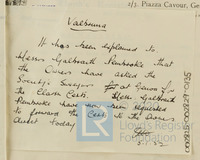 2/3. Piazza Cavour, Ge
Valbruna
It has been explained to
Messrs Galbraith Pembroke that
the Owners have asked the
Society's Surveyor at Genoa for
the Class Certs. Messrs Galbraith
Pembroke have been requested
to forward the Certs to the Owners
direct today
5.1.52
Lloyd's Register
Foundation